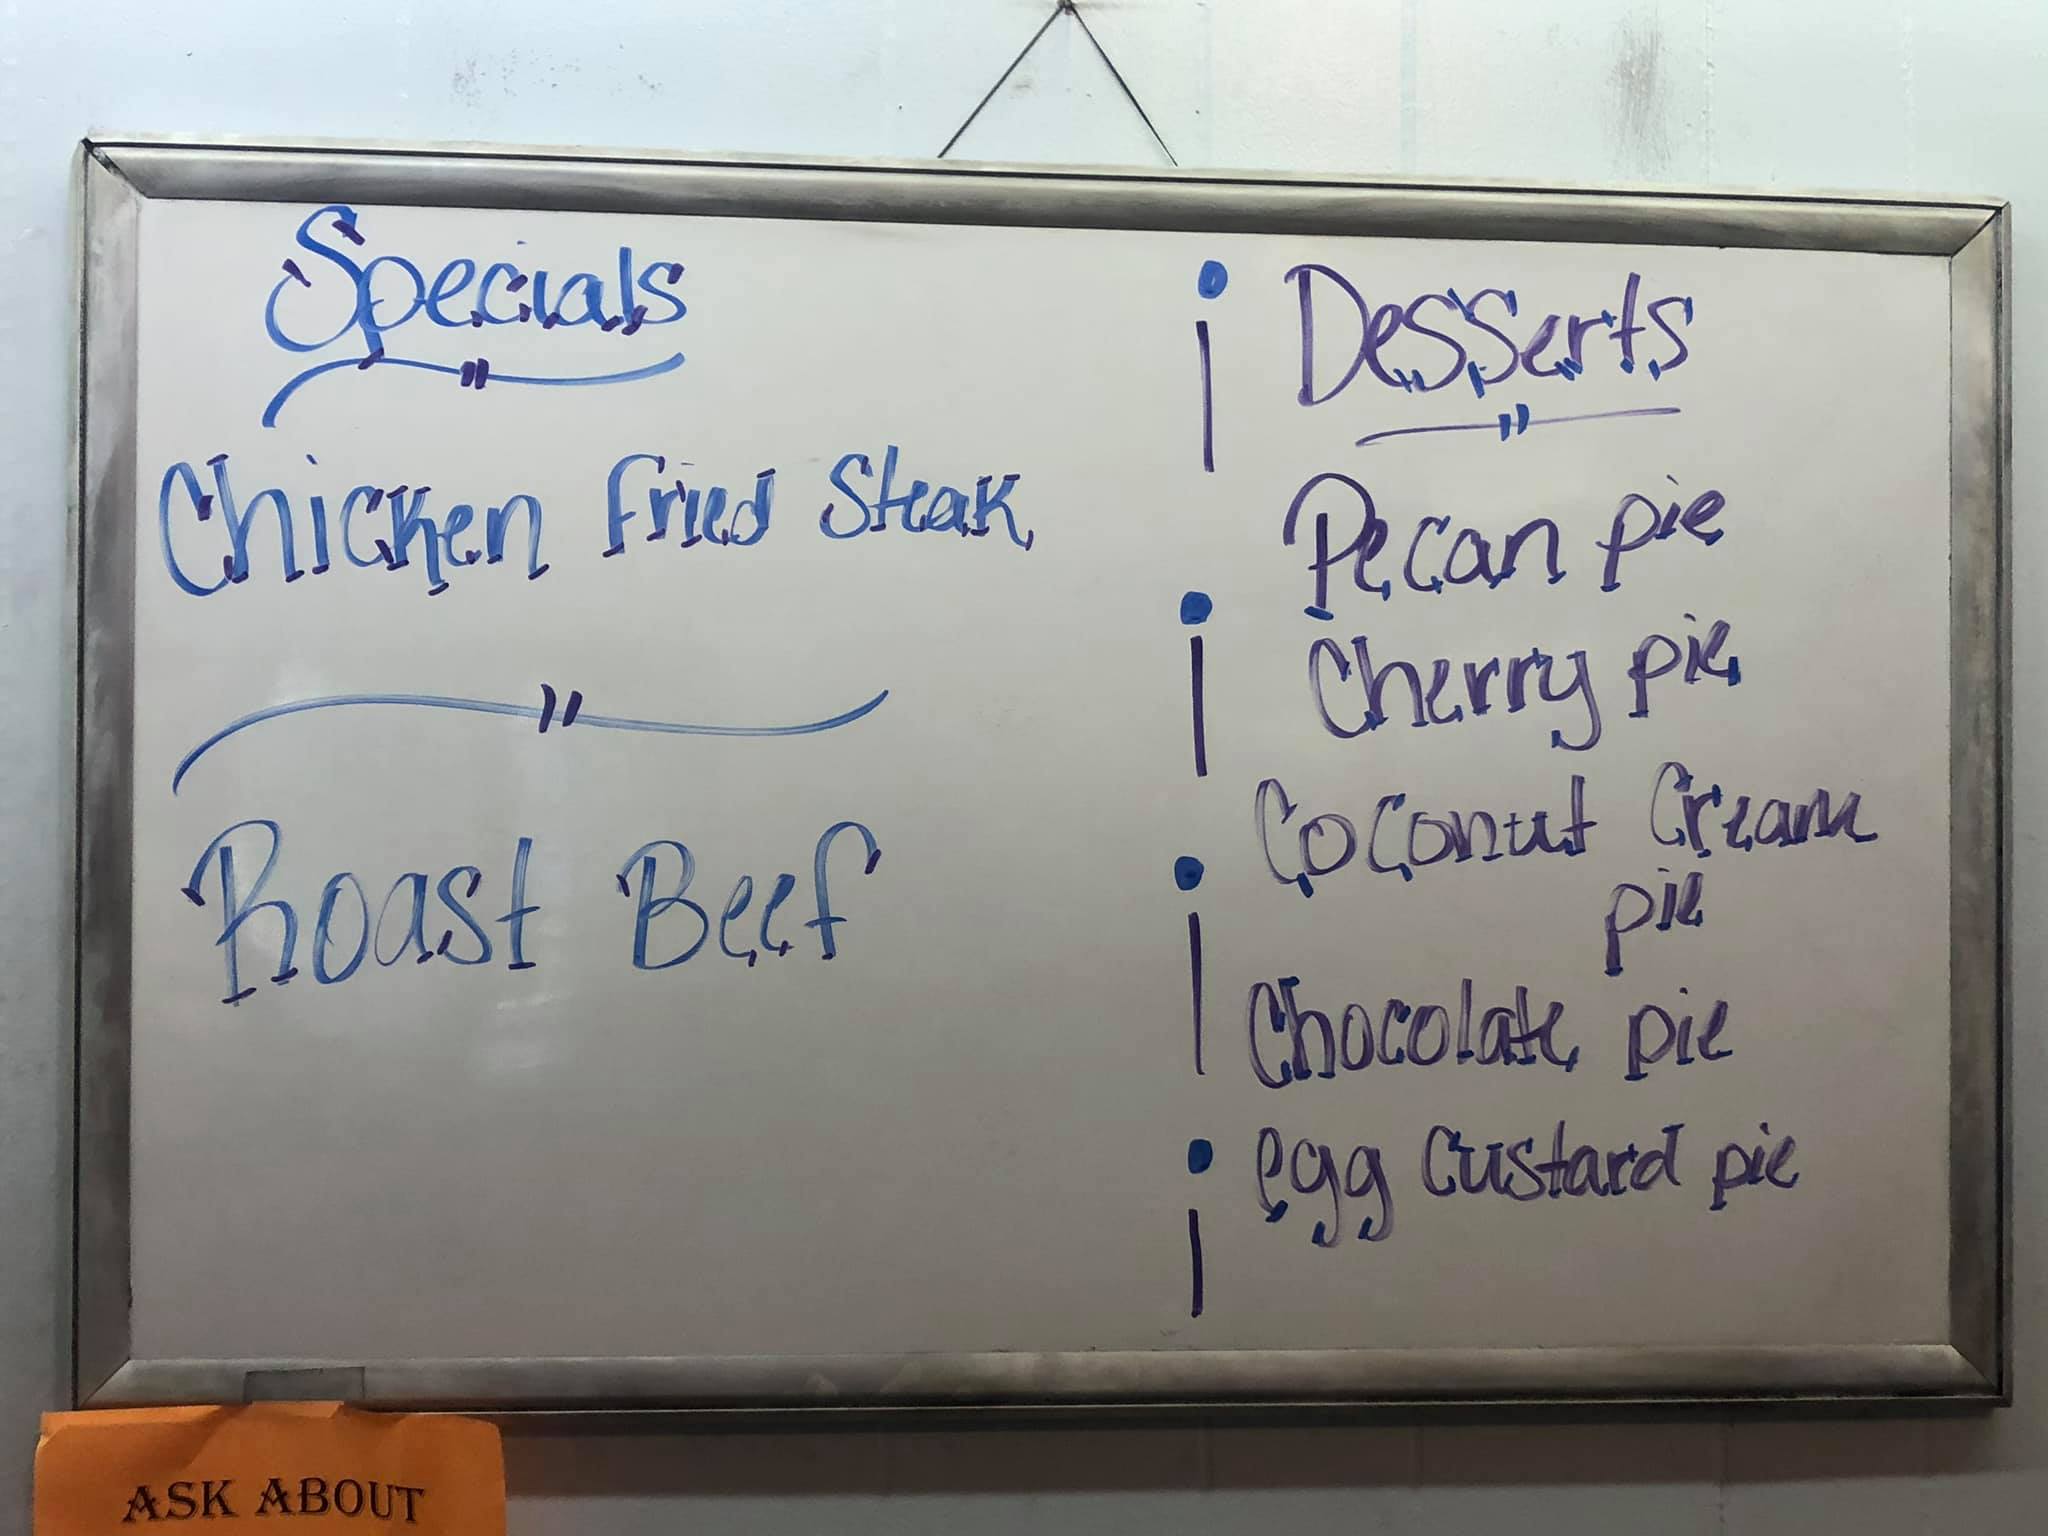 Specials
Chicken Fried Steak
Roast Beef
Desserts
Pecan pie
Cherry pie
Coconut Cream
pie
Chocolate pie
egg Custard pie
ASK ABOUT